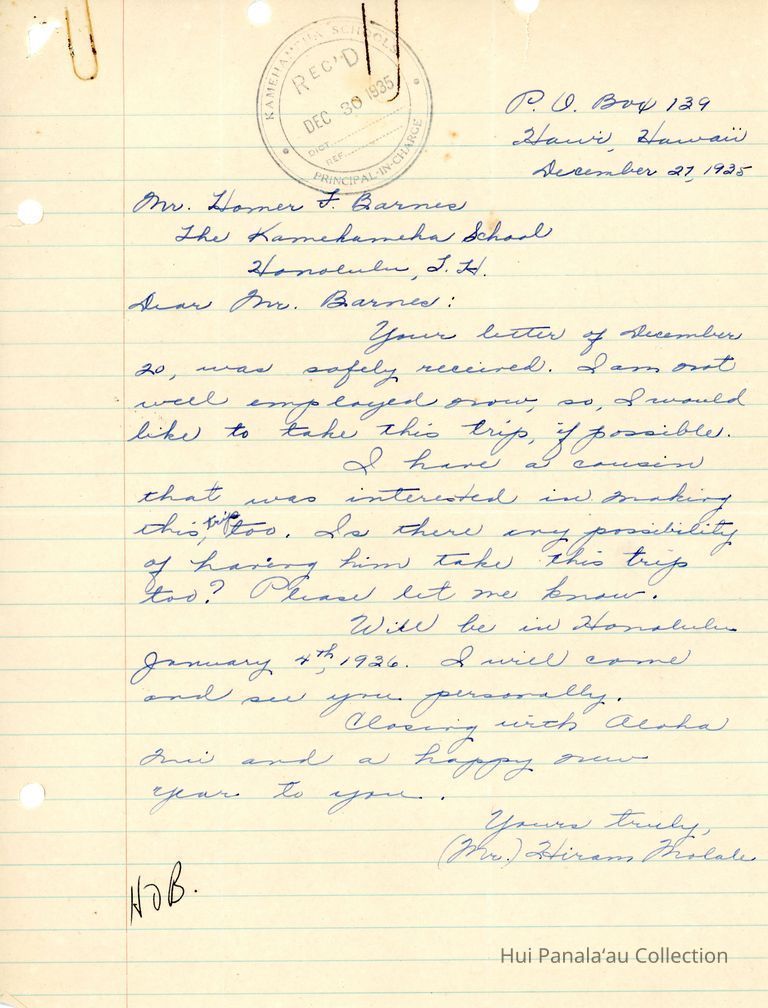 KAMEHAMEHA SCHOOLS
REC'D
DEC 30 1935
DICT.
REF.
PRINCIPAL-IN-CHARGE
P. O. Box 139
Hawi, Hawaii
December 27, 1935
Mr. Homer F. Barnes
The Kamehameha School
Honolulu, T. H.
Dear Mr. Barnes:
Your letter of December
20, was safely received. I am not
well employed now, so, I would
like to take this trip, if possible.
I have a cousin
that was interested in making
this trip, too. Is there any possibility
of having him take this trip
too? Please let me know.
Will be in Honolulu
January 4th, 1936. I will come
and see you personally.
Closing with Aloha
Nui and a happy new
year to you.
Yours truly,
(Mr.) Hiram Molale
Hui Panalaʻau Collection